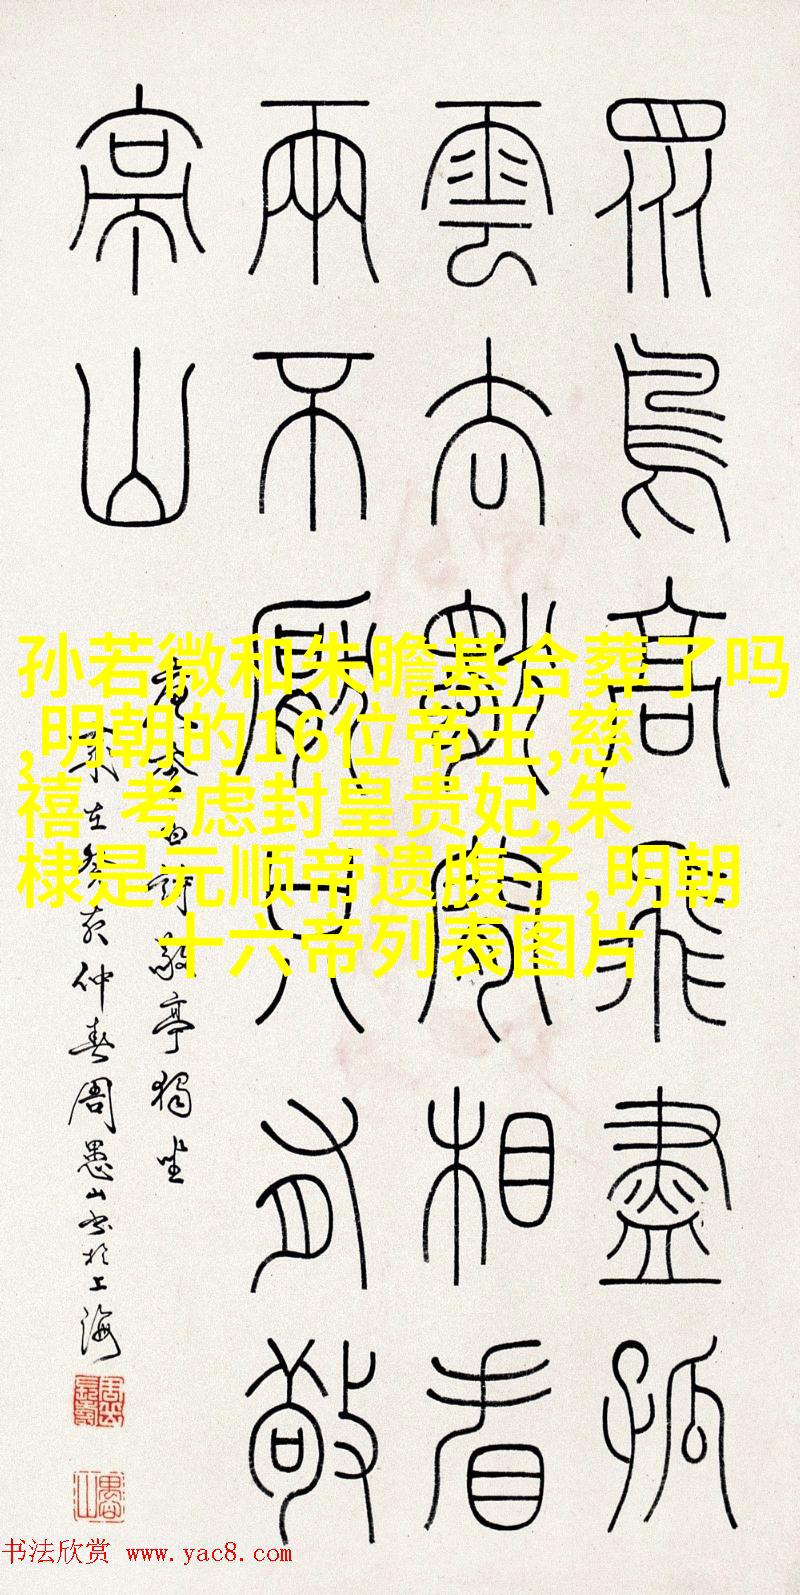 眾鳥高飛盡孤
雲去獨閒相看
兩不厭只有敬
亭山
唐李白詩敬亭獨坐
歲在癸亥仲春周愚山書於上海
孙若微和朱瞻基合葬了吗
,明朝的16位帝王,慈
禧 考虑封皇贵妃,朱
棣是元顺帝遗腹子,明朝
十六帝列表图片
书法欣赏 www.yac8.com